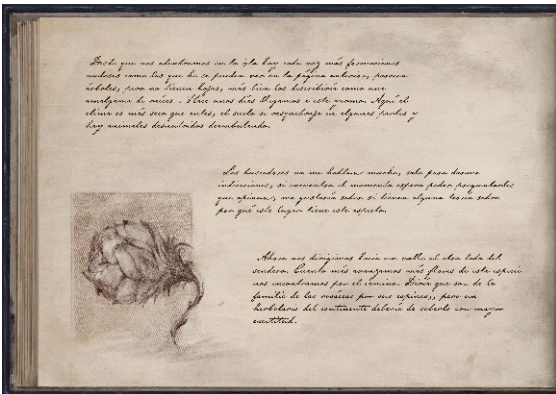 Desde que nos adentramos en la isla hay cada vez más formaciones
nudosas como las que ya se pueden ver en la página anterior, parecen
árboles, pero no tienen hojas, más bien los describiría como una
amalgama de raíces. Hace unos días llegamos a este páramo. Aquí el
clima es más seco que antes, el suelo se resquebraja en algunas partes y
hay animales desnutridos deambulando.
Los buscadores no me hablan mucho, solo para darme
indicaciones, si encuentro el momento espero poder preguntarles
que opinan, me gustaría saber si tienen alguna teoría sobre
por qué este lugar tiene este aspecto.
Ahora nos dirigimos hacia un valle al otro lado del
sendero. Cuanto más avanzamos más flores de esta especie
nos encontramos por el camino. Diría que son de la
familia de las rosáceas por sus espinas, pero un
herbolario del continente debería de saberlo con mayor
exactitud.